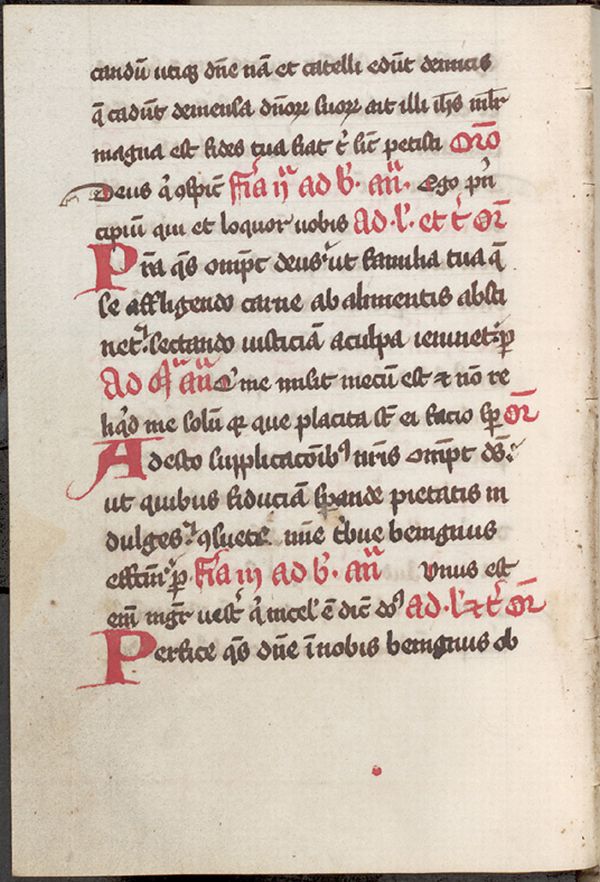 candū utiqꝫ dn̄e nā et catelli edūt demicis
q̄ cadūt demensa dn̄oꝝ suoꝝ ait illi ih̄s ml̄r
magna est fides tua fiat t͛ sic̄ petisti Or̄o
Deus q͛ ꝯspic̄ Fīa ij ad b͛. an̄. Ego pn͛
cipiū qui et loquor uobis ad .l͛. et t͛ Or̄
Pr̄a qs̄ omp̄t deus ut familia tua q̄
se affligendo carne ab alimentis absti
net sectando iusticiā aculpa ieiunet ꝑ
Ad an̄ Q͛ me misit mecū est ⁊ nō re
liq͛d me solū qꝛ que placita st̄ ei facio sp̄ Or̄
Adesto supplicacōibꝰ nr̄is omp̄t ds̄
ut quibus fiduciā sꝑande pietatis in
dulges ꝯsuete mīe t͛bue benignus
effcm̄ ꝑ Fīa iij ad b͛. an̄ Vnus est
em̄ mgr̄ uest͛ q͛ incel͛ ē dic̄ ds̄ ad .l͛ ⁊ t͛ Or̄
Perfice qs̄ dn̄e ī nobis benignus ob